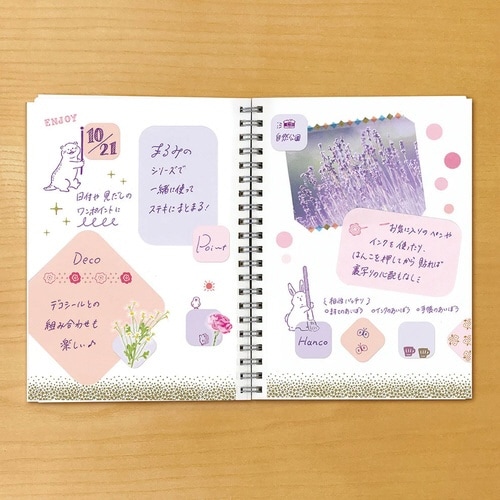 ENJOY
10/21
日付や見だしの
ワンポイントに
まるみの
シリーズで
一緒に使って
ステキにまとまる!
Point
Deco
デコシールとの
組み合わせも
楽しい♪
自然公園
お気に入りのペンや
インクを使ったり、
はんこを押してから貼れば
裏写りの心配もなし
{相性バッチリ}
Hanco